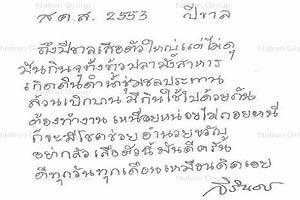 ส.ค.ส. 2553 ปีขาล
ถึงปีขาลเสือตัวใหญ่แต่ไม่ดุ
มันกินจุทั้งข้าวปลามังสาหาร
เกิดดินดำน้ำชุ่มชลประทาน
ล้วนเบิกบาน มีกินใช้ไปด้วยกัน
ต้องทำงาน เหนื่อยหน่อยไม่ถอยหนี
ก็จะมีโชคช่วยอำนวยขวัญ
อย่ากลัวเสือตัวนี้มันดีครัน
ดีทุกวันทุกเดือนเหมือนคิดเอย
สิรินธร
Nation Group
Nation Group
Nation Group
Nation Group
Nation Group